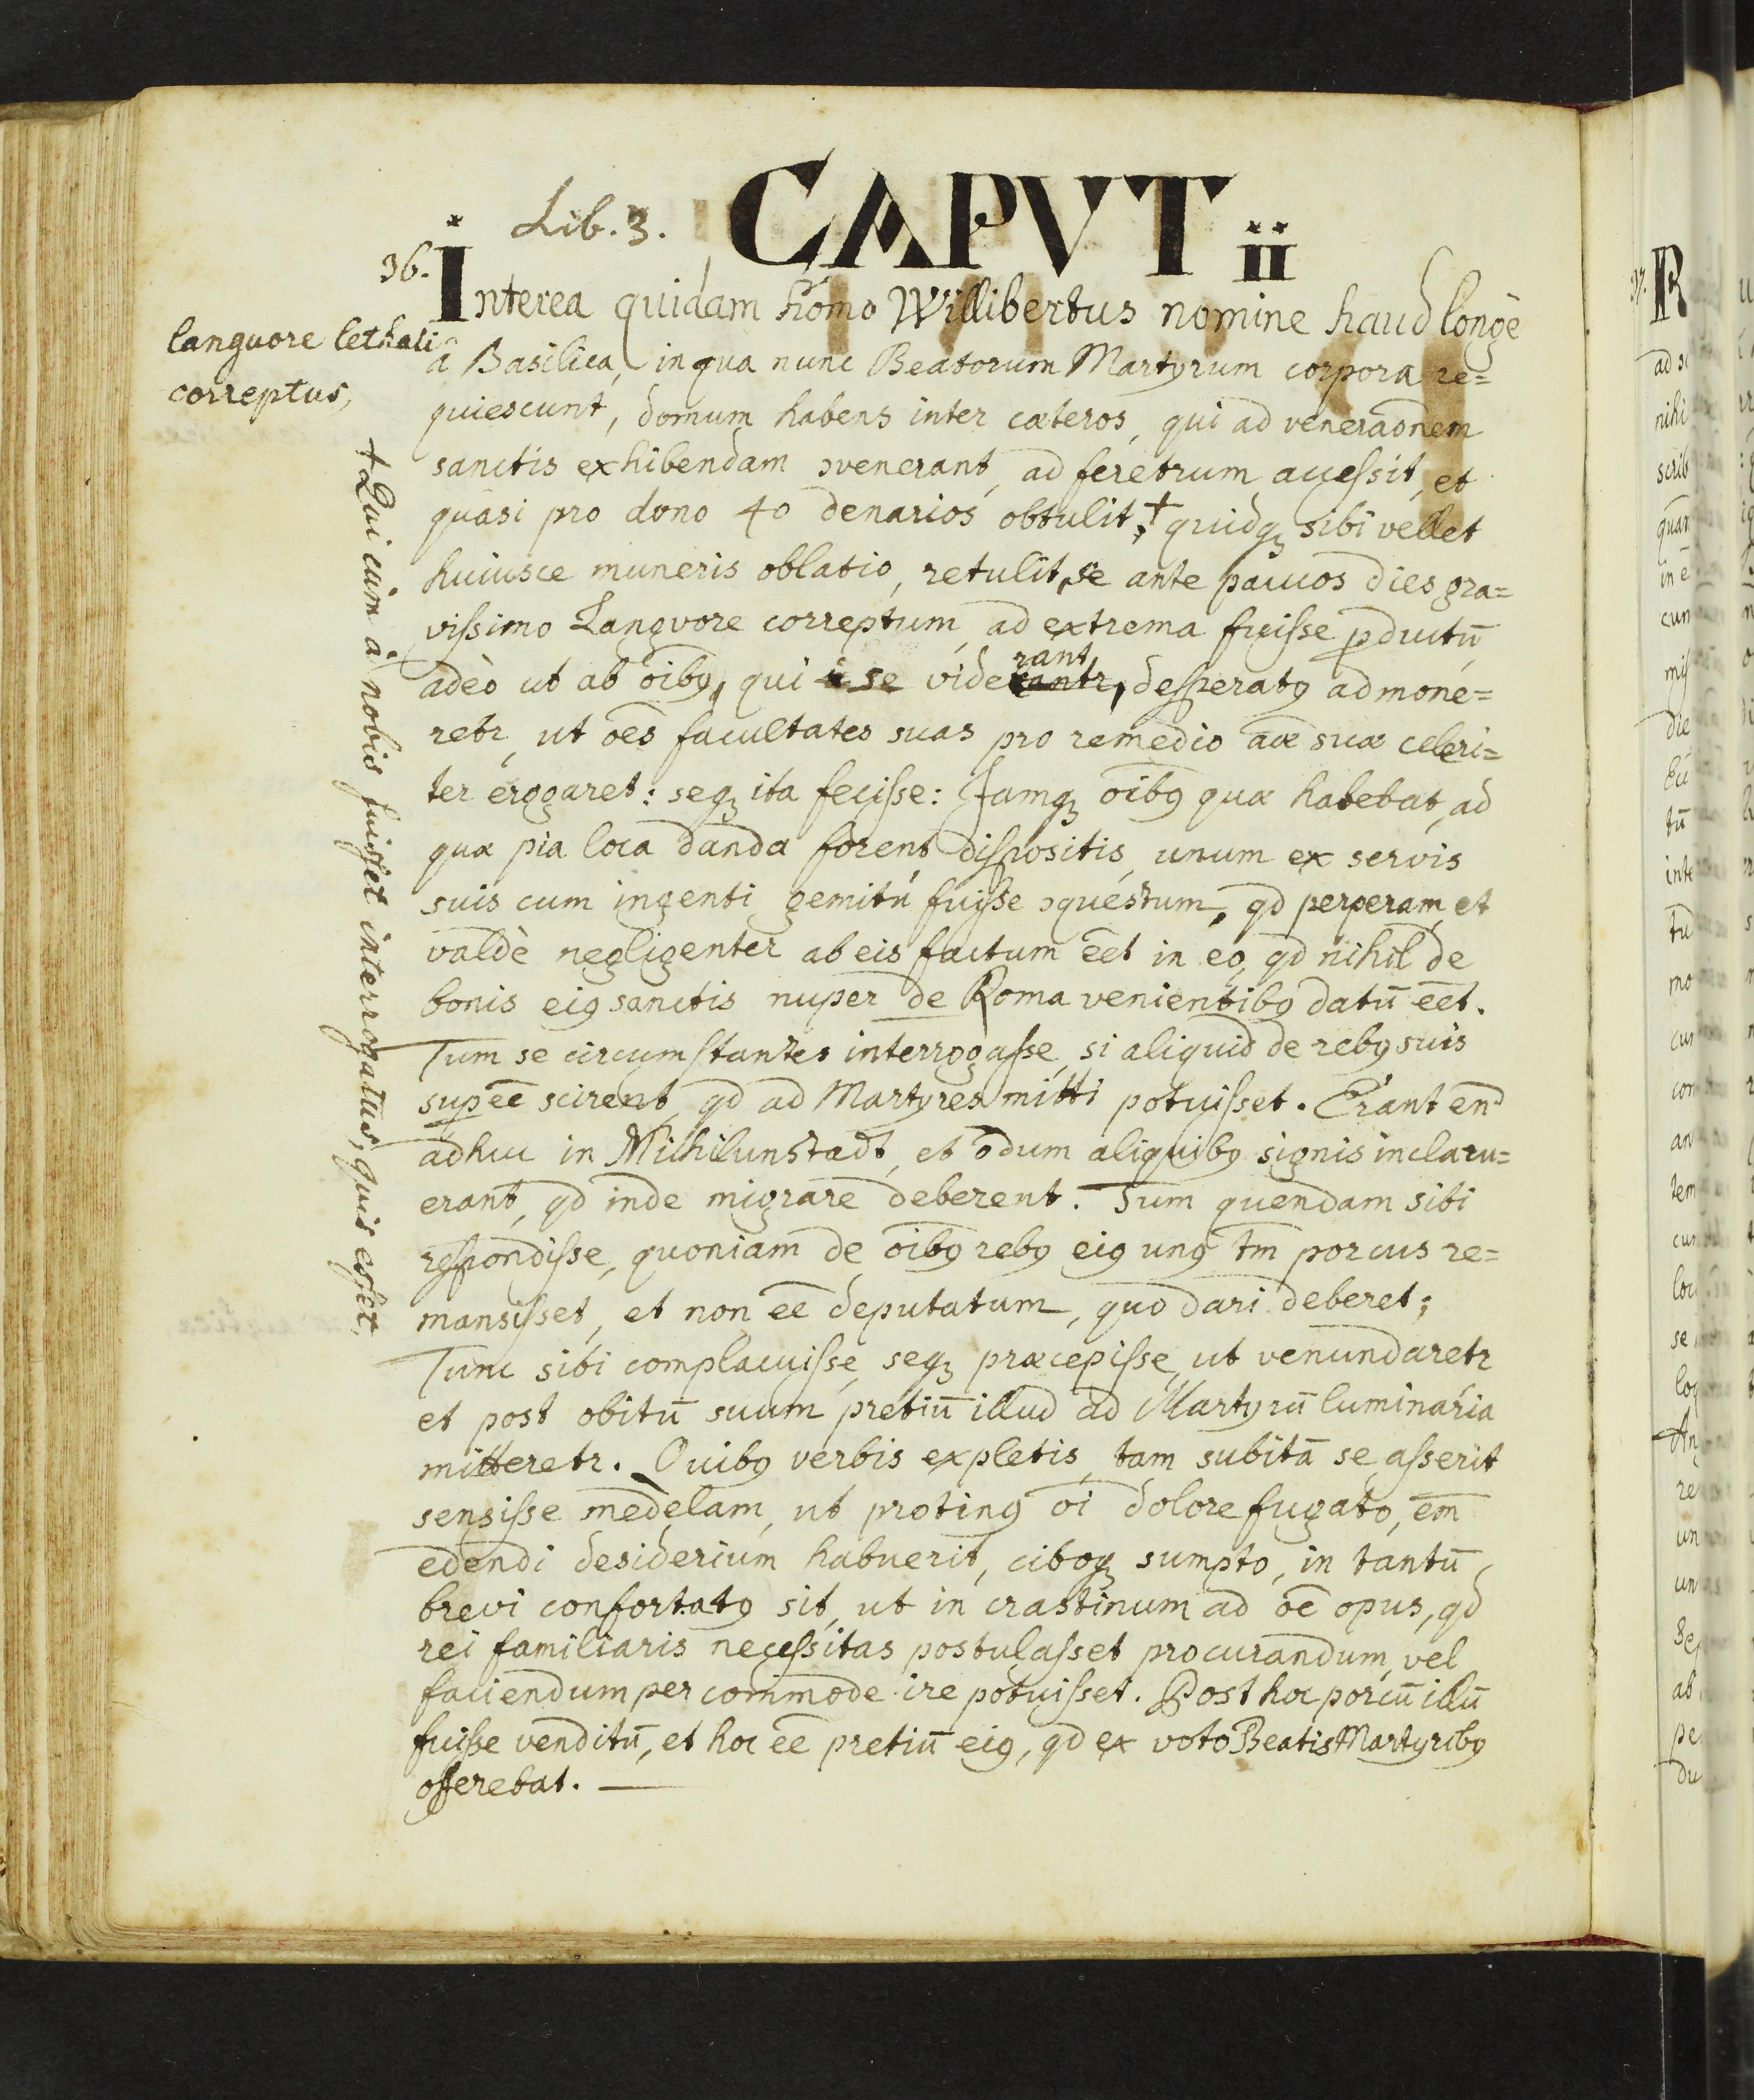 Lib. 3. CAPVT ii
36.
Interea quidam homo Willibertus nomine haud longè
languore lethali
correptus,
à Basilica, in qua nunc Beatorum Martyrum corpora re=
quiescunt, domum habens inter cæteros, qui ad veneraõnem
sanctis exhibendam ɔvenerant, ad feretrum accessit, et
quasi pro dono 40 denarios obtulit, † quidqꝫ sibi vellet
huiusce muneris oblatio, retulit, se ante paucos dies gra=
vissimo Langvore correptum, ad extrema fuisse ꝑductū,
adeò ut ab oībꝰ, qui se viderant, desperatꝰ admone=
retr, ut oēs facultates suas pro remedio aīæ suæ celeri=
ter erogaret: seqꝫ ita fecisse: Jamqꝫ oībꝰ quæ habebat, ad
quæ pia loca danda forent dispositis, unum ex servis
suis cum ingenti gemitu fuisse ɔquestum, qd perperam, et
valdè negligenter ab eis factum eēt in eo, qd nihil de
bonis eiꝰ sanctis nuper de Roma venientibꝰ datū eēt.
Tum se circumstantes interrogasse, si aliquid de rebꝰ suis
supeē scirent, qd ad Martyres mitti potuisset. Erant en̄
adhuc in Michilunstadt, et ōdum aliquibꝰ signis inclaru=
erant, qd inde migrare deberent. Tum quendam sibi
respondisse, quoniam de oībꝰ rebꝰ eiꝰ unꝰ tm̄ porcus re=
mansisset, et non eē deputatum, quo dari deberet;
Tunc sibi complacuisse, seqꝫ præcepisse, ut venundaretr
et post obitū suum pretiū illud ad Martyrū luminaria
mitteretr. Quibꝰ verbis expletis, tam subitā se asserit
sensisse medelam, ut protinꝰ oī dolore fugato, em̄
edendi desiderium habuerit, ciboqꝫ sumpto, in tantū
brevi confortatꝰ sit, ut in crastinum ad oē opus, qd
rei familiaris necessitas postulasset procurandum, vel
faciendum percommode ire potuisset. Post hoc porcū illū
fuisse venditū, et hoc eē pretiū eiꝰ, qd ex voto Beatis Martyribꝰ
offerebat. —
† Qui cùm à nobis fuisset interrogatus, quis esset,